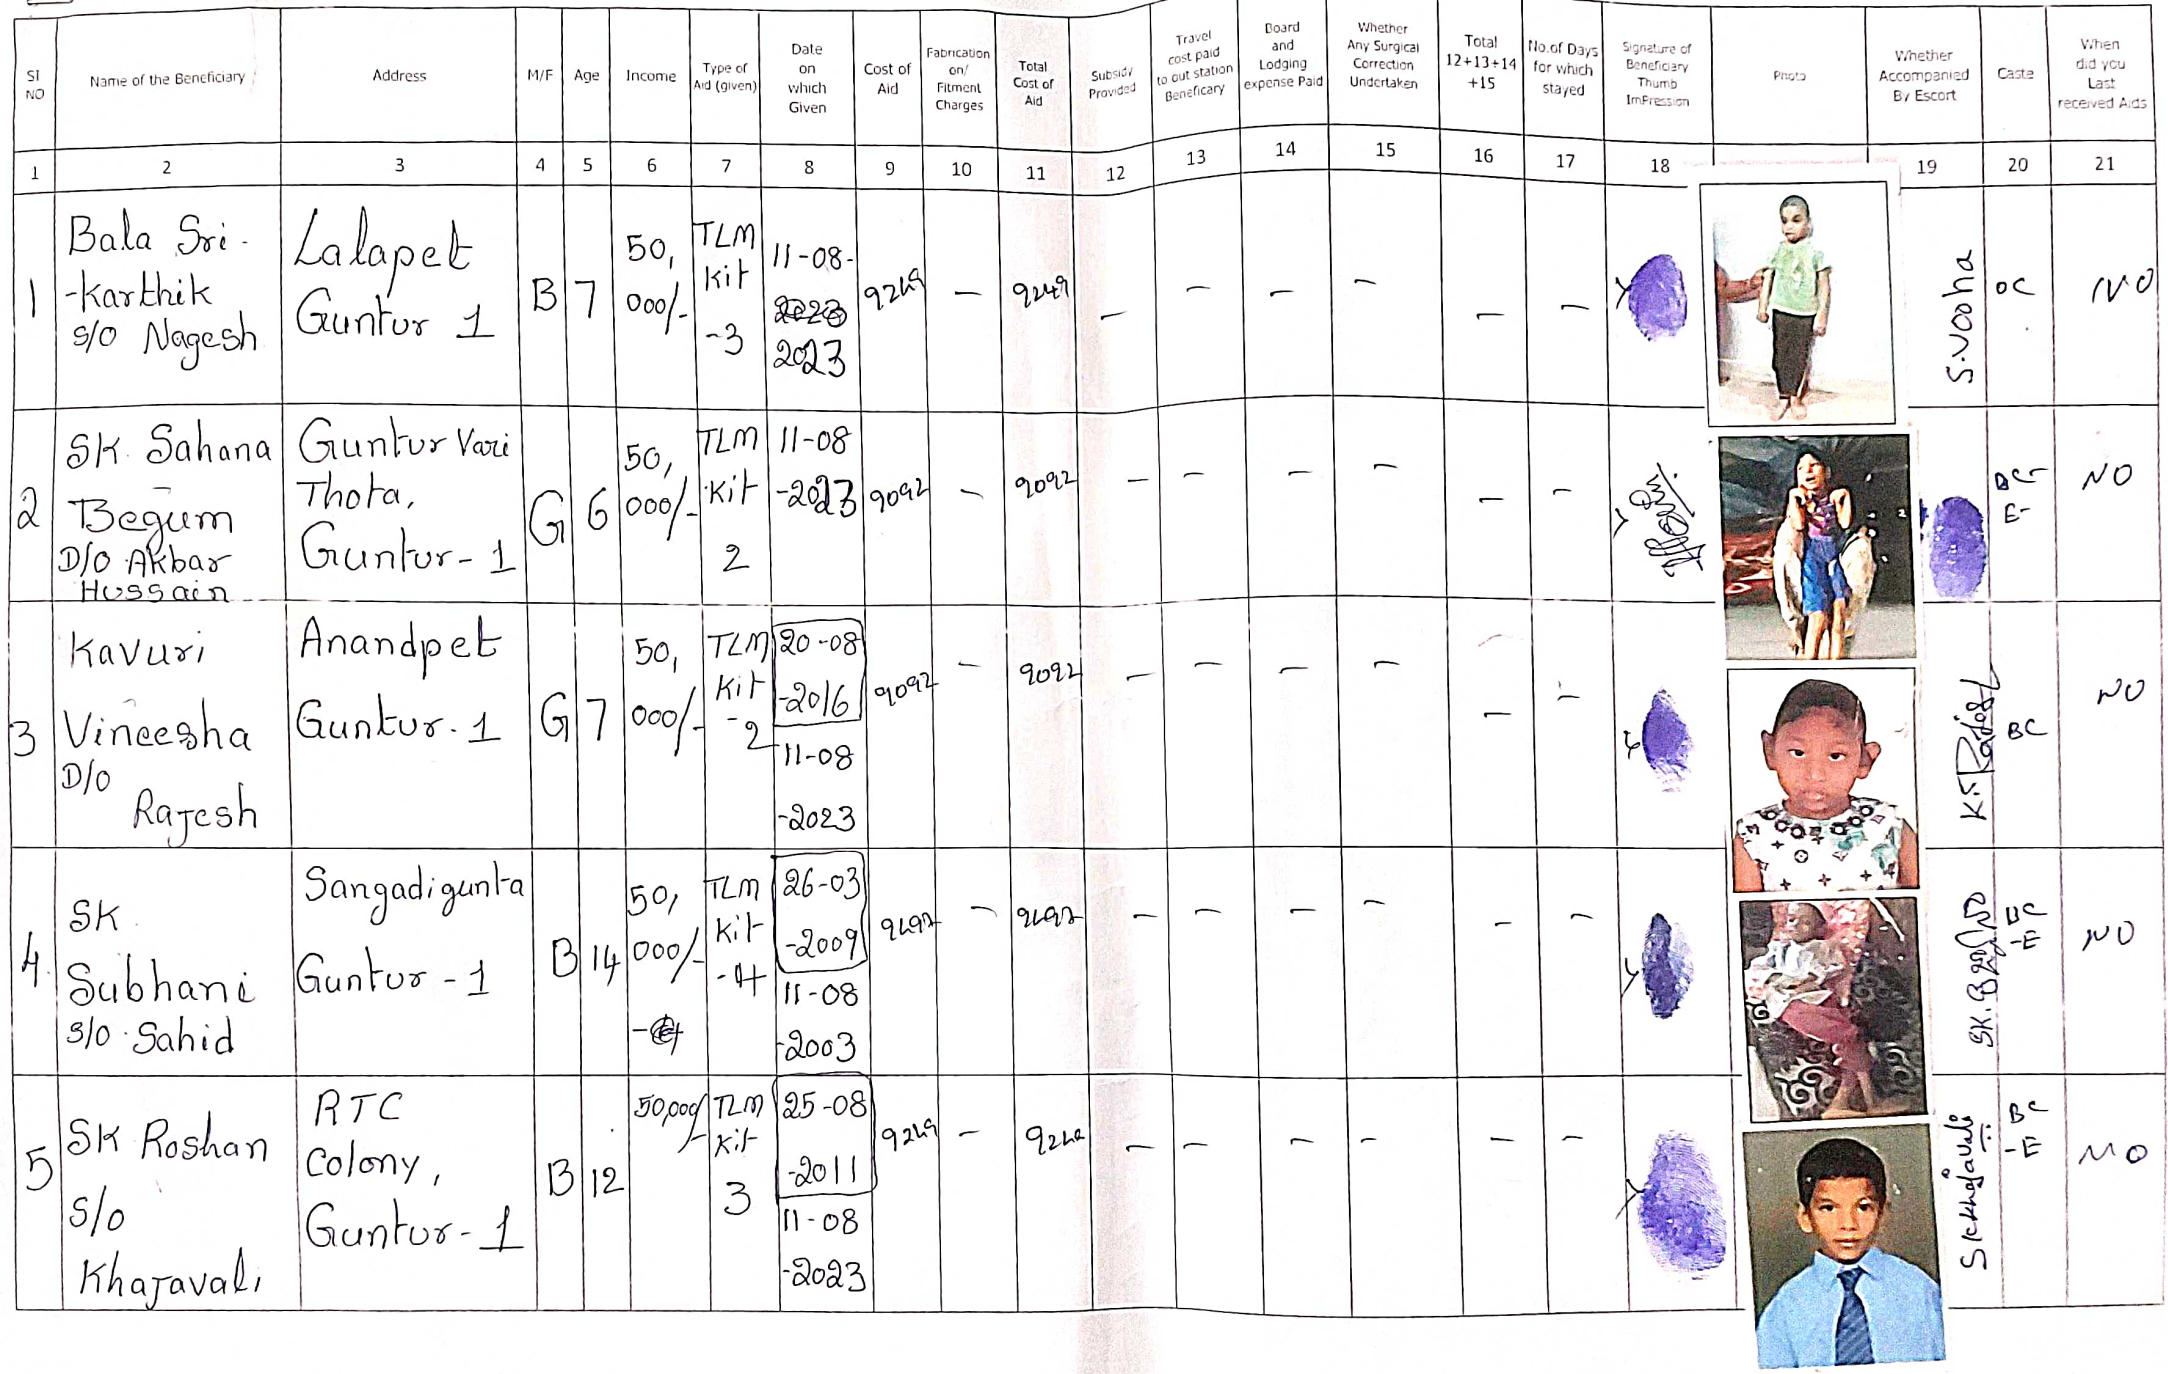 SI NO
Name of the Beneficiary
Address
M/F
Age
Income
Type of Aid (given)
Date on which Given
Cost of Aid
Fabrication on/ Fitment Charges
Total Cost of Aid
Subsidy Provided
Travel cost paid to out station Beneficary
Board and Lodging expense Paid
Whether Any Surgical Correction Undertaken
Total 12+13+14 +15
No.of Days for which stayed
Signature of Beneficiary Thumb ImPression
Photo
Whether Accompanied By Escort
Caste
When did you Last received Aids
1 2 3 4 5 6 7 8 9 10 11 12 13 14 15 16 17 18 19 20 21
1
Bala Sri-
-Karthik
S/O Nagesh
Lalapet
Guntur 1
B
7
50,
000/-
TLM
Kit
-3
11-08-
2023
9249
—
9249
—
—
—
—
—
—
S.Vooha
OC
NO
2
SK. Sahana
Begum
D/O Akbar
Hussain
Guntur Vari
Thota,
Guntur-1
G
6
50,
000/-
TLM
Kit
2
11-08
-2023
9092
—
9092
—
—
—
—
—
—
BC-
E-
NO
3
Kavuri
Vineesha
D/O
Rajesh
Anandpet
Guntur.1
G
7
50,
000/-
TLM
Kit
-2
20-08
-2016
11-08
-2023
9092
—
9092
—
—
—
—
—
—
K. Rajesh
BC
NO
4.
SK
Subhani
S/O Sahid
Sangadigunta
Guntur-1
B
14
50,
000/-
TLM
Kit
-4
26-03
-2009
11-08
-2003
—
—
—
—
—
—
—
SK.
BC
-E
NO
5
SK Roshan
S/O
Khajavali
RTC
Colony,
Guntur-1
B
12
50,000/-
TLM
Kit
3
25-08
-2011
11-08
-2023
9249
—
9249
—
—
—
—
—
—
Sk khajavali
BC
-E
NO